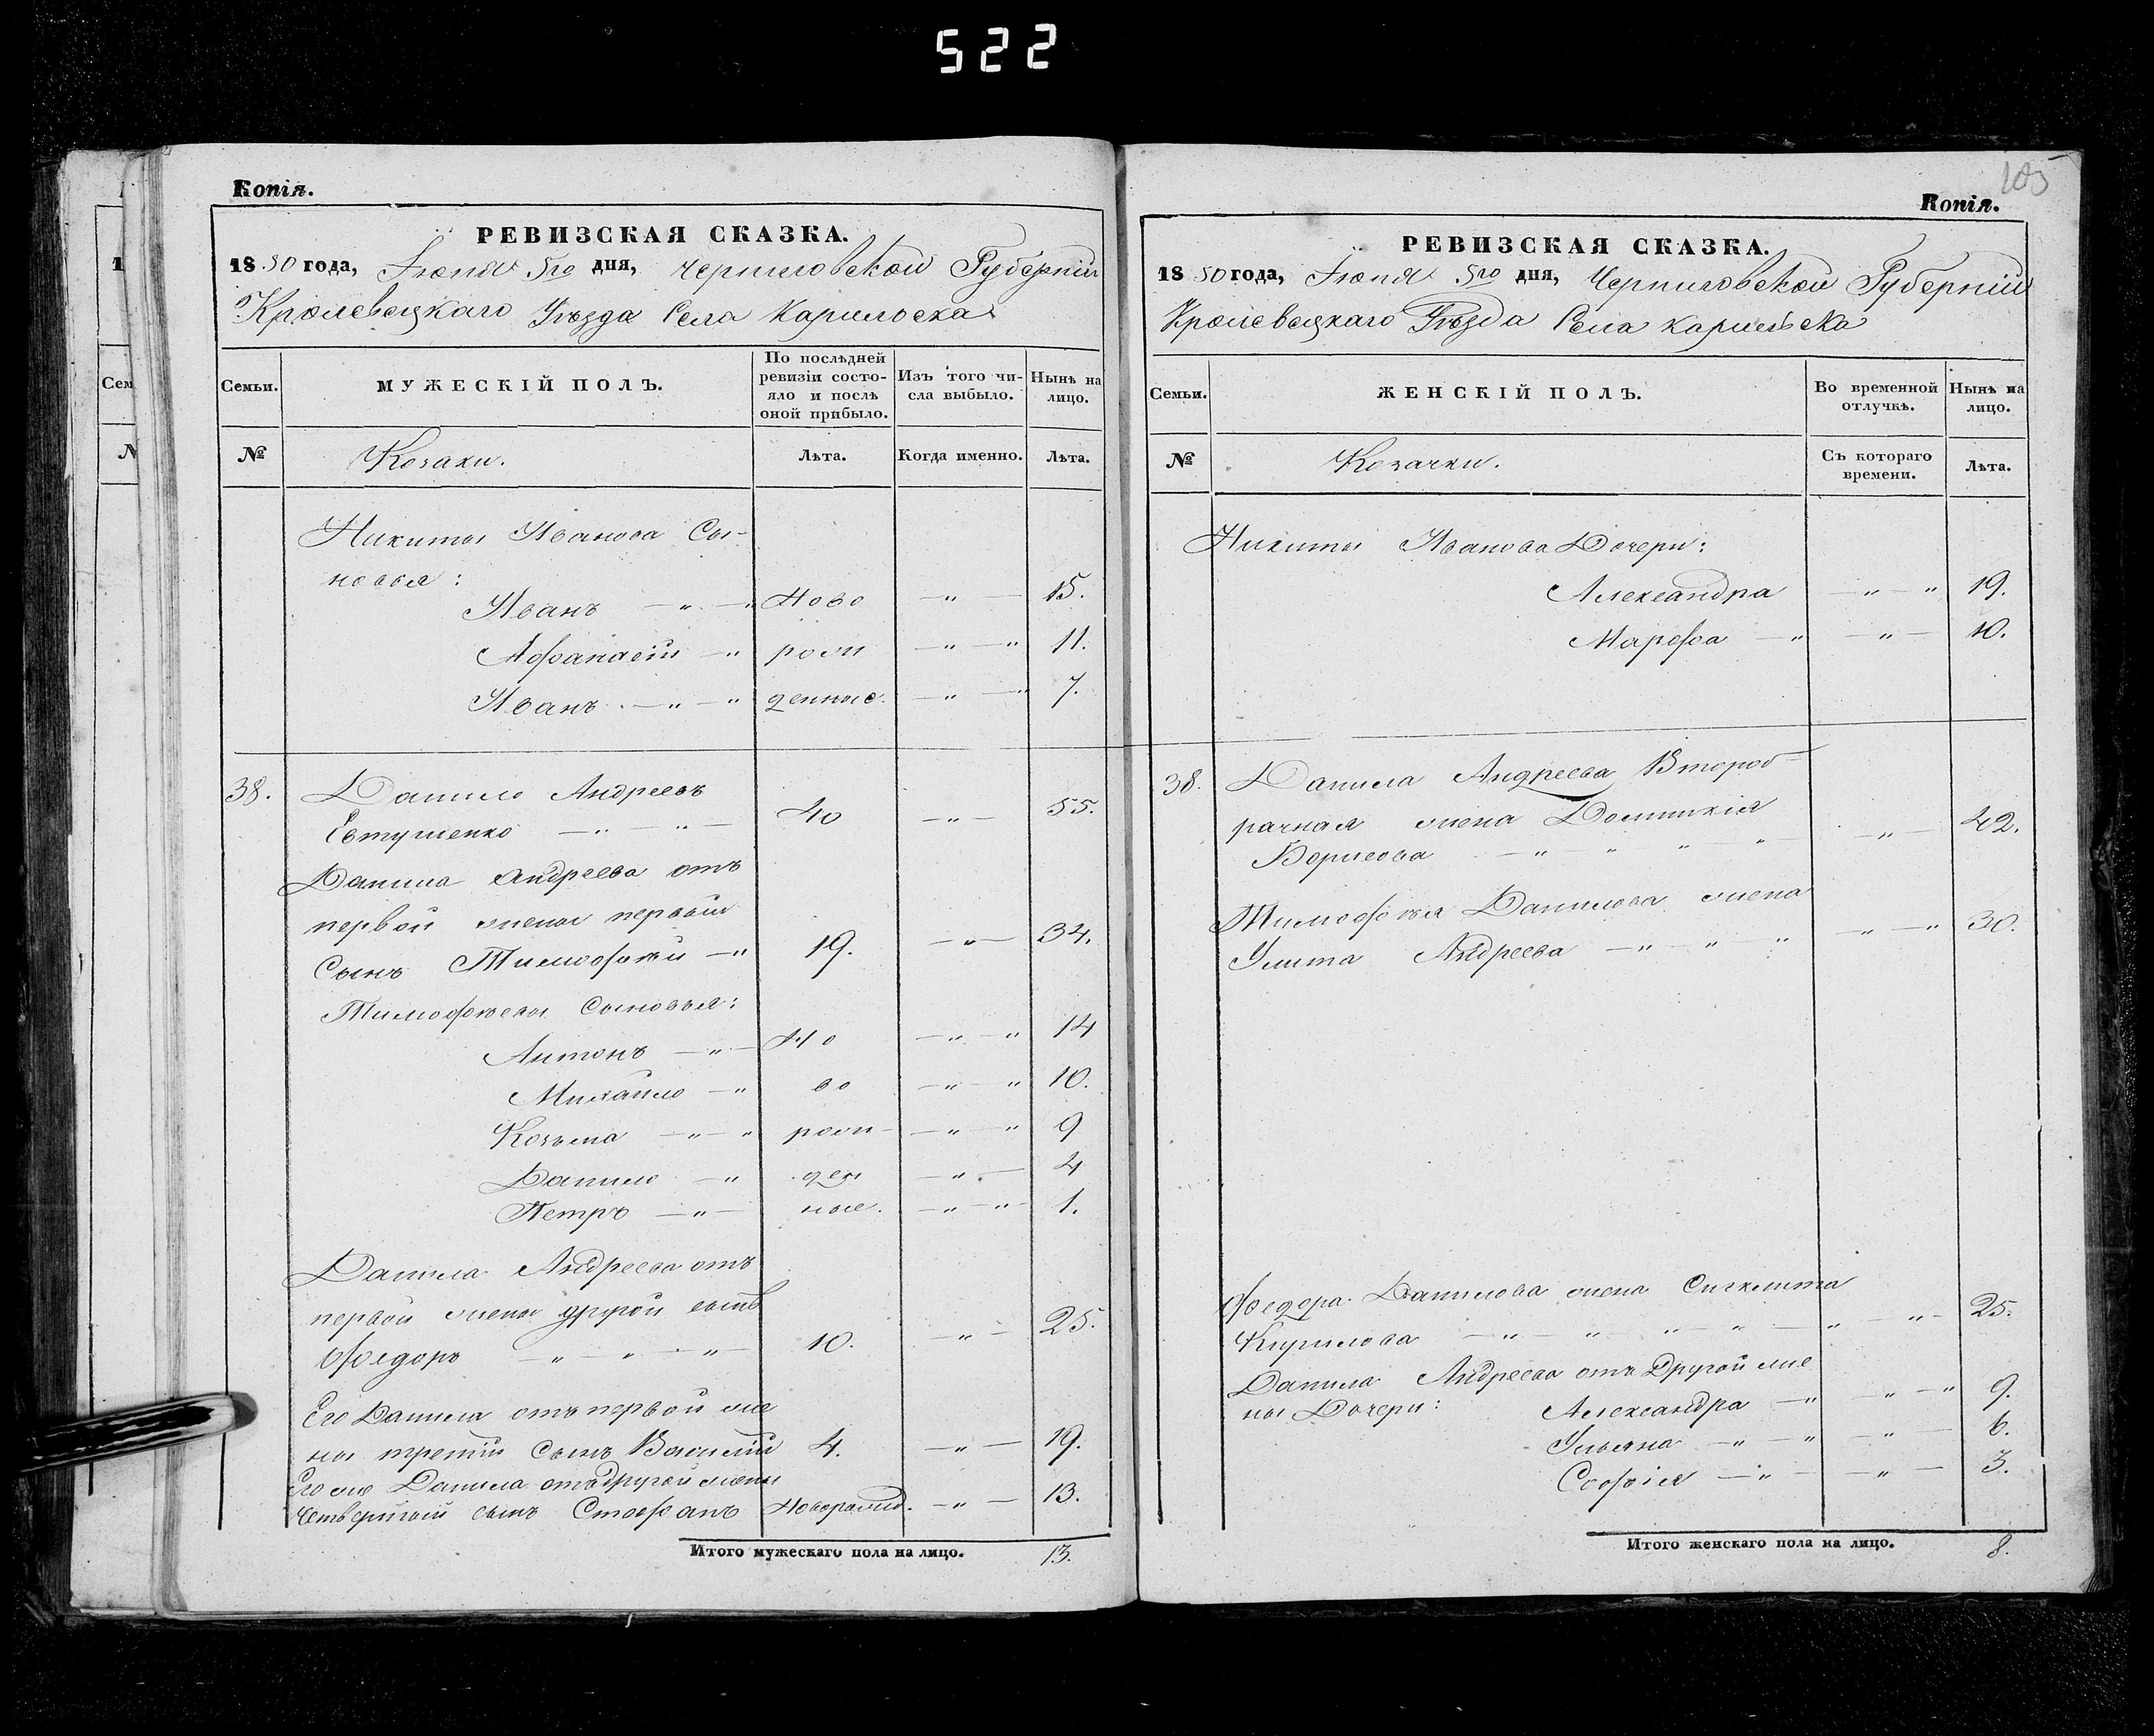 522
105
Копія.
РЕВИЗСКАЯ СКАЗКА.
1850 года, Іюня 5го дня, Черниговской Губерніи
Кролевецкаго Уѣзда Села Карильска
Семьи.
МУЖЕСКІЙ ПОЛЪ.
По послѣдней ревизіи состо-
яло и послѣ оной прибыло.
Изъ того чи-
сла выбыло.
Нынѣ на лицо.
№
Козаки.
Лѣта.
Когда именно.
Лѣта.
Никиты Иванова Сы-
новья:
Иванъ — " — " Ново — " — 15.
Афанасій — " рож — " — " 11.
Иванъ — " — " денные. — " — " 7.
38. Данило Андреевъ
Евтушенко — " — " — 40 — " — 55.
Данила Андреева отъ
первой жены первый
Сынъ Тимофѣй — " 19. — " — 34.
Тимофѣевы Сыновья:
Антонъ — " — Но — " — " 14
Михайло — " во — " — " 10.
Козьма — " — " рож — " — " 9
Данило — " ден — " — 4
Петръ — " — ные. — " — " — 1.
Данила Андреева отъ
первой жены другой сынъ
Федоръ — " — " — " — 10. — " — 25.
Его Данила отъ первой же
ны третій Сынъ Василій 4. — " — 19.
Его же Данила отъ другой жены
четвертый сынъ Стефанъ Новорожд. — " — 13.
Итого мужескаго пола на лицо. 13.
Копія.
РЕВИЗСКАЯ СКАЗКА.
1850 года, Іюня 5го дня, Черниговской Губерніи
Кролевецкаго Уѣзда Села Карильска
Семьи.
ЖЕНСКІЙ ПОЛЪ.
Во временной
отлучкѣ.
Нынѣ на
лицо.
№
Козачки.
Съ котораго
времени.
Лѣта.
Никиты Иванова Дочери:
Александра — " — " 19.
Марфа — " — " — 10.
38. Данила Андреева Второб
рачная жена Домникія
Борисова — " — " — " — " — " — 42.
Тимофѣя Данилова жена
Улита Андреева — " — " — " — " — " 30.
Федора Данилова жена Сигклита
Кирилова — " — " — " — " — " — " — 25.
Данила Андреева отъ Другой же
ны Дочери: Александра — " — " — " 9.
Ульяна — " — " — " — 6.
Софія — " — — " — 3.
Итого женскаго пола на лицо. 8.